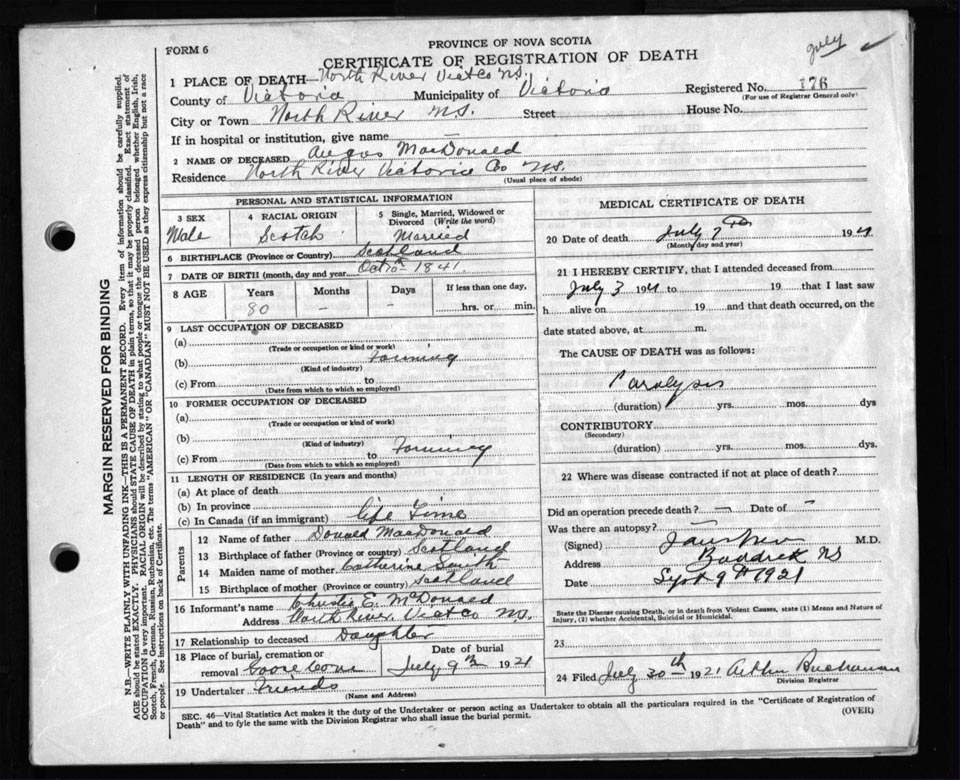 July
PROVINCE OF NOVA SCOTIA
FORM 6
CERTIFICATE OF REGISTRATION OF DEATH
1 PLACE OF DEATH North River Vict Co N.S.
County of Victoria Municipality of Victoria Registered No. 176
(For use of Registrar General only)
City or Town North River N.S. Street House No.
If in hospital or institution, give name —
2 NAME OF DECEASED Angus MacDonald
Residence North River Victoria Co N.S.
(Usual place of abode)
PERSONAL AND STATISTICAL INFORMATION
3 SEX 4 RACIAL ORIGIN 5 Single, Married, Widowed or Divorced (Write the word)
Male Scotch Married
6 BIRTHPLACE (Province or Country) Scotland
7 DATE OF BIRTH (month, day and year) Oct 10 1841
8 AGE Years Months Days If less than one day,
80 - - hrs. or min.
9 LAST OCCUPATION OF DECEASED
(a)
(Trade or occupation or kind of work)
(b) Farming
(Kind of industry)
(c) From to
(Date from which to which so employed)
10 FORMER OCCUPATION OF DECEASED
(a)
(Trade or occupation or kind of work)
(b)
(Kind of industry)
(c) From to Farming
(Date from which to which so employed)
11 LENGTH OF RESIDENCE (In years and months)
(a) At place of death
(b) In province
(c) In Canada (if an immigrant) life time
Parents
12 Name of father Donald MacDonald
13 Birthplace of father (Province or country) Scotland
14 Maiden name of mother Catherine Smith
15 Birthplace of mother (Province or country) Scotland
16 Informant's name Christie E. McDonald
Address North River Vict Co N.S.
17 Relationship to deceased Daughter
18 Place of burial, cremation or Date of burial
removal Goose Cove July 9th 1921
19 Undertaker Friends
(Name and Address)
MEDICAL CERTIFICATE OF DEATH
20 Date of death July 7th 1921
(Month, day and year)
21 I HEREBY CERTIFY, that I attended deceased from
July 3 1921 to 19 that I last saw
h alive on 19 and that death occurred, on the
date stated above, at m.
The CAUSE OF DEATH was as follows:
Paralysis
(duration) yrs. mos. dys
CONTRIBUTORY
(Secondary)
(duration) yrs. mos. dys.
22 Where was disease contracted if not at place of death?
Did an operation precede death? — Date of —
Was there an autopsy? —
(Signed) M.D.
Address Baddeck NS
Date Sept 9th 1921
State the Disease causing Death, or in death from Violent Causes, state (1) Means and Nature of
Injury, (2) whether Accidental, Suicidal or Homicidal.
23
24 Filed July 30th 1921 Arthur Buchanan
Division Registrar
SEC. 46—Vital Statistics Act makes it the duty of the Undertaker or person acting as Undertaker to obtain all the particulars required in the "Certificate of Registration of
Death" and to fyle the same with the Division Registrar who shall issue the burial permit.
(OVER)
MARGIN RESERVED FOR BINDING
N.B.—WRITE PLAINLY WITH UNFADING INK—THIS IS A PERMANENT RECORD. Every item of information should be carefully supplied.
AGE should be stated EXACTLY. PHYSICIANS should STATE CAUSE OF DEATH in plain terms, so that it may be properly classified. Exact statement of
OCCUPATION is very important. RACIAL ORIGIN will be described by stating to what people or tongue the deceased person belonged whether English, Irish,
Scotch, French, German, Russian, Ruthenian, etc. The terms "AMERICAN" OR "CANADIAN" MUST NOT BE USED as they express citizenship but not a race
or people. See instructions on back of Certificate.